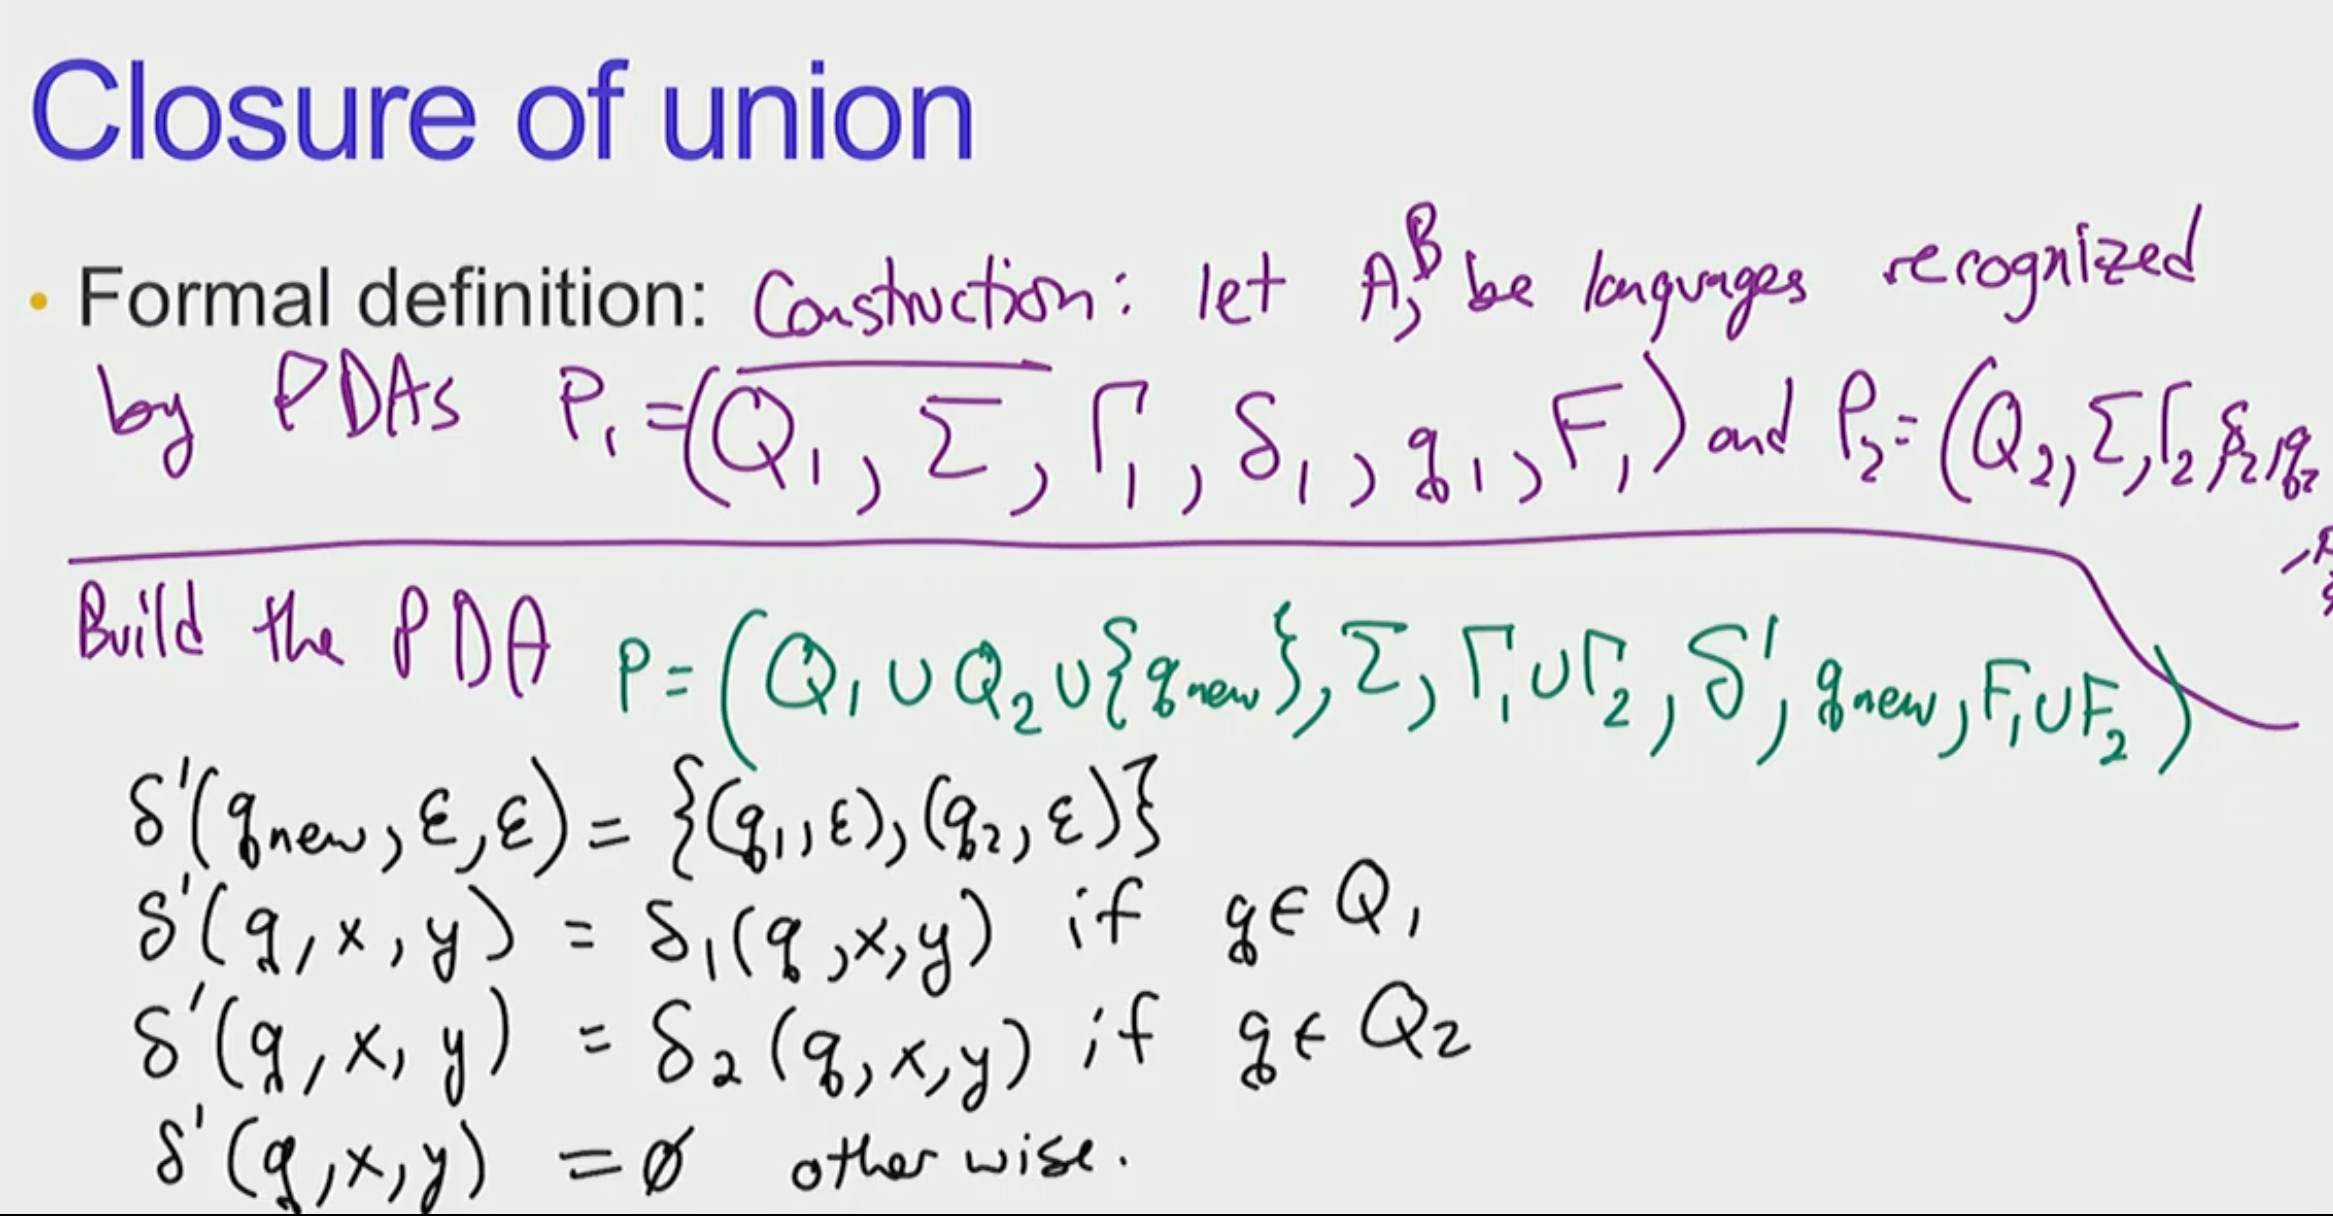 Closure of union
• Formal definition: Construction: let A, B be languages recognized
by PDAs P₁ = (Q₁, Σ, Γ₁, δ₁, q₁, F₁) and P₂ = (Q₂, Σ, Γ₂, δ₂, q₂
, F₂
Build the PDA P = (Q₁ ∪ Q₂ ∪ {q_new}, Σ, Γ₁ ∪ Γ₂, δ', q_new, F₁ ∪ F₂)
δ'(q_new, ε, ε) = {(q₁, ε), (q₂, ε)}
δ'(q, x, y) = δ₁(q, x, y) if q ∈ Q₁
δ'(q, x, y) = δ₂(q, x, y) if q ∈ Q₂
δ'(q, x, y) = ∅ otherwise.